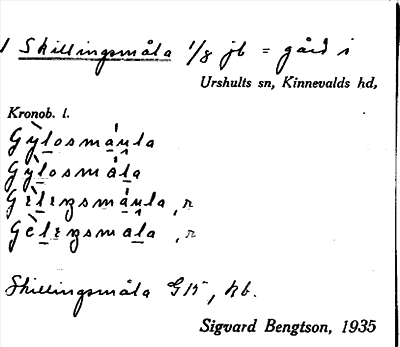 1 Skillingsmåla 1/8 jb = gård i
Urshults sn, Kinnevalds hd,
Kronob. l.
Gỳlosmáula
Gỳlosmåla
Gèlezsmáula, r
Gèlezsmåla, r
Skillingsmåla GK, kb.
Sigvard Bengtson, 1935